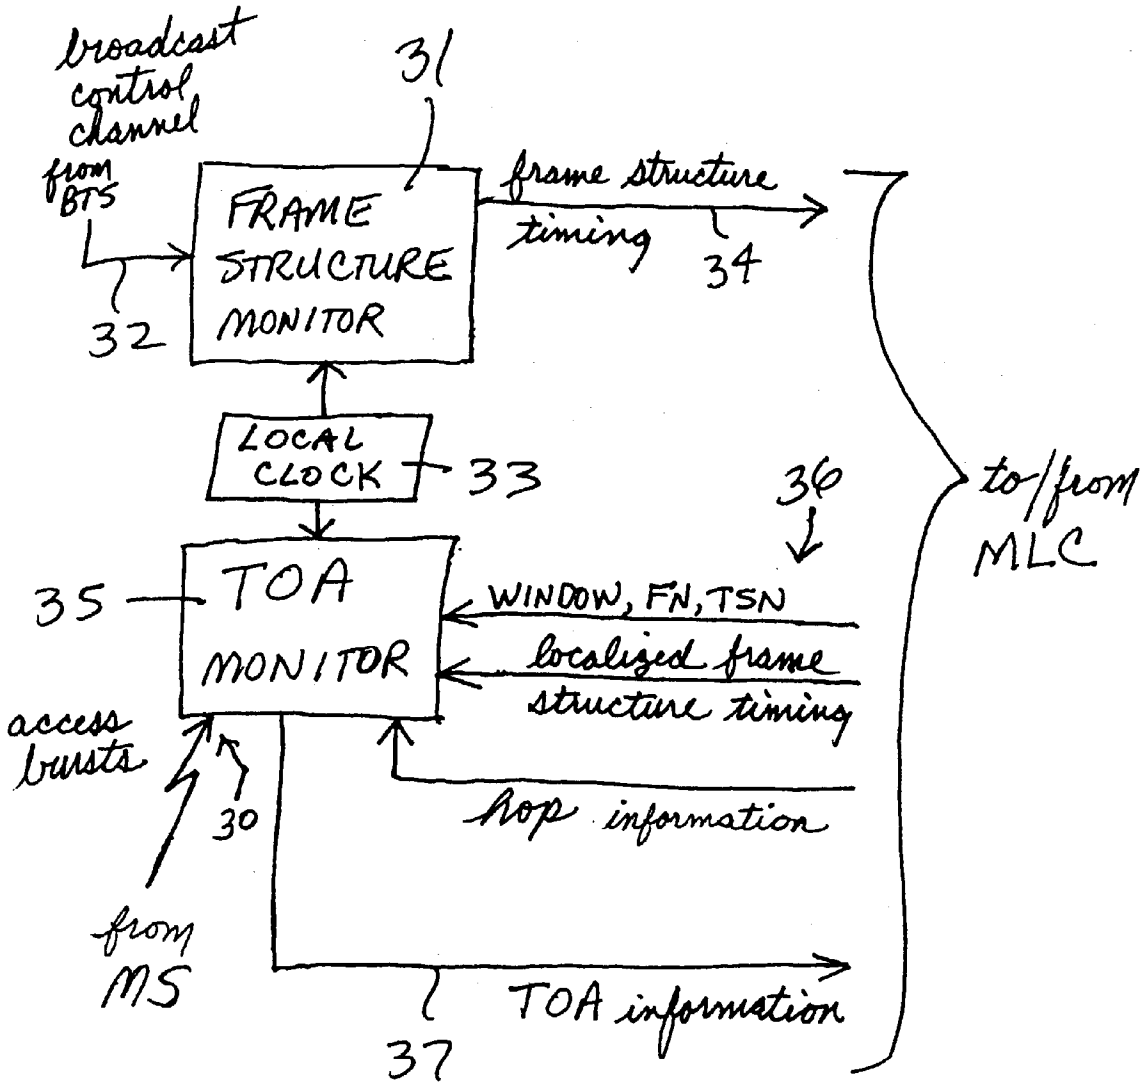 broadcast
control
channel
from
BTS
31
FRAME
STRUCTURE
MONITOR
frame structure
timing
34
32
LOCAL
CLOCK
33
36
to/from
MLC
35
TOA
MONITOR
WINDOW, FN, TSN
localized frame
structure timing
access
bursts
30
hop information
from
MS
TOA information
37